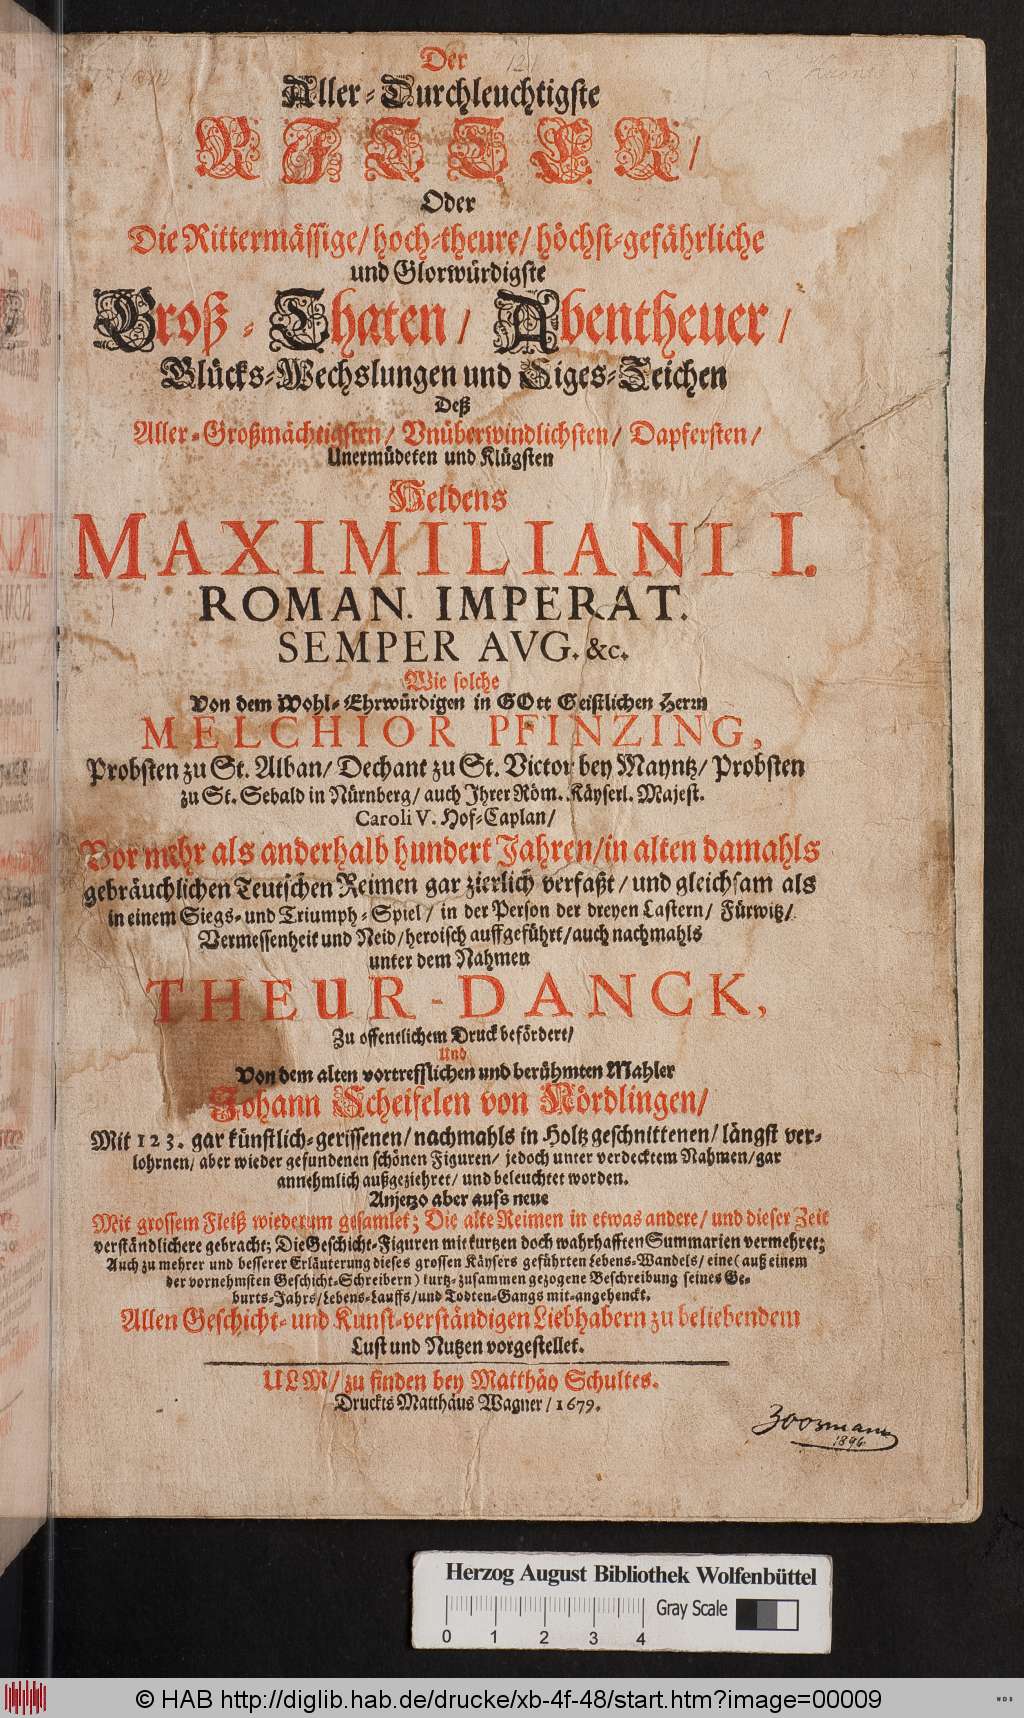 Der
Aller-Durchleuchtigste
RITTER/
Oder
Die Rittermässige/ hoch-theure/ höchst-gefährliche
und Glorwürdigste
Groß-Thaten/ Abentheuer/
Glücks-Wechslungen und Siges-Zeichen
Deß
Aller-Großmächtigsten/ Vnüberwindlichsten/ Dapfersten/
Unermüdeten und Klügsten
Heldens
MAXIMILIANI I.
ROMAN. IMPERAT.
SEMPER AVG. &c.
Wie solche
Von dem Wohl-Ehrwürdigen in GOtt Geistlichen Herrn
MELCHIOR PFINZING,
Probsten zu St. Alban/ Dechant zu St. Victor bey Mayntz/ Probsten
zu St. Sebald in Nürnberg/ auch Ihrer Röm. Käyserl. Majest.
Caroli V. Hof-Caplan/
Vor mehr als anderhalb hundert Jahren/ in alten damahls
gebräuchlichen Teutschen Reimen gar zierlich verfaßt/ und gleichsam als
in einem Siegs- und Triumph-Spiel/ in der Person der dreyen Lastern/ Fürwitz/
Vermessenheit und Neid/ heroisch auffgeführt/ auch nachmahls
unter dem Nahmen
THEUR-DANCK,
Zu offentlichem Druck befördert/
Und
Von dem alten vortrefflichen und berühmten Mahler
Johann Scheifelen von Nördlingen/
Mit 123. gar künstlich-gerissenen/ nachmahls in Holtz geschnittenen/ längst ver-
lohrnen/ aber wieder gefundenen schönen Figuren/ jedoch unter verdecktem Nahmen/ gar
annehmlich außgeziehret/ und beleuchtet worden.
Anjetzo aber aufs neue
Mit grossem Fleiß wiederum gesamlet; Die alte Reimen in etwas andere/ und dieser Zeit
verständlichere gebracht; Die Geschicht-Figuren mit kurtzen doch wahrhafften Summarien vermehret;
Auch zu mehrer und besserer Erläuterung dieses grossen Käysers geführten Lebens-Wandels/ eine (auß einem
der vornehmsten Geschicht-Schreibern) kurtz-zusammen gezogene Beschreibung seines Ge-
burts-Jahrs/ Lebens-Lauffs/ und Todten-Gangs mit-angehenckt.
Allen Geschicht- und Kunst-verständigen Liebhabern zu beliebendem
Lust und Nutzen vorgestellet.
ULM/ zu finden bey Matthäo Schultes.
Druckts Matthäus Wagner/ 1679.
Zoozmann
1896
Herzog August Bibliothek Wolfenbüttel
Gray Scale
0 1 2 3 4
© HAB http://diglib.hab.de/drucke/xb-4f-48/start.htm?image=00009